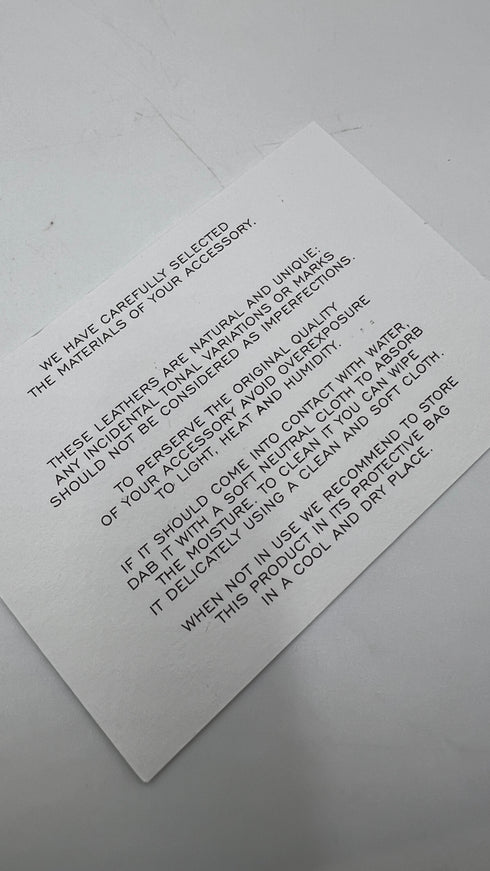 WE HAVE CAREFULLY SELECTED
THE MATERIALS OF YOUR ACCESSORY.
THESE LEATHERS ARE NATURAL AND UNIQUE;
ANY INCIDENTAL TONAL VARIATIONS OR MARKS
SHOULD NOT BE CONSIDERED AS IMPERFECTIONS.
TO PERSERVE THE ORIGINAL QUALITY
OF YOUR ACCESSORY AVOID OVEREXPOSURE
TO LIGHT, HEAT AND HUMIDITY.
IF IT SHOULD COME INTO CONTACT WITH WATER,
DAB IT WITH A SOFT NEUTRAL CLOTH TO ABSORB
THE MOISTURE. TO CLEAN IT YOU CAN WIPE
IT DELICATELY USING A CLEAN AND SOFT CLOTH.
WHEN NOT IN USE WE RECOMMEND TO STORE
THIS PRODUCT IN ITS PROTECTIVE BAG
IN A COOL AND DRY PLACE.